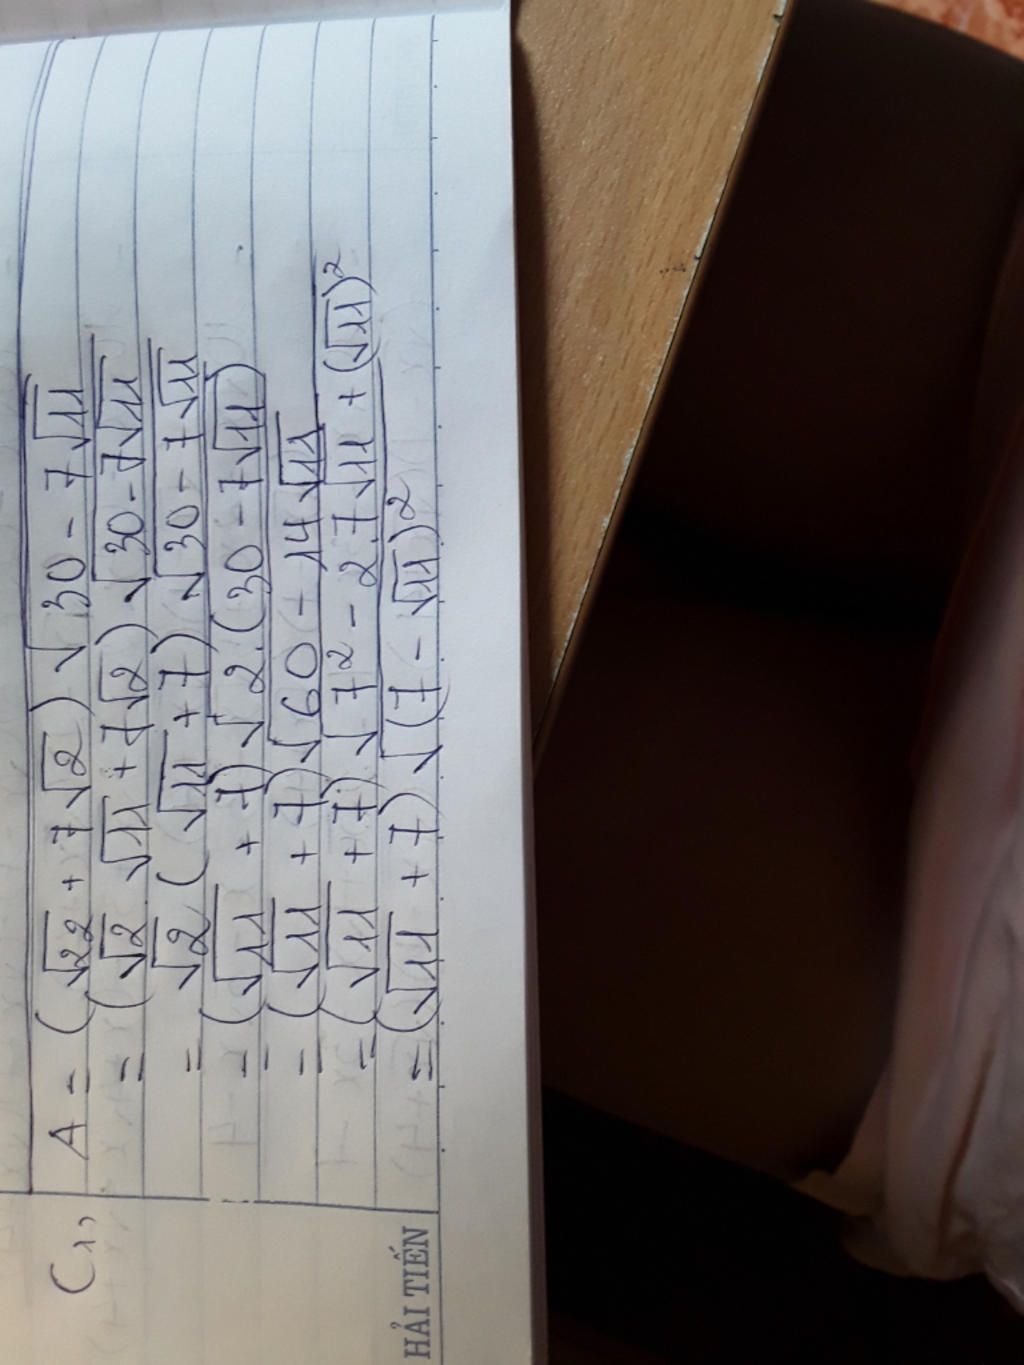 C1,
A = (√22 + 7√2) √(30 - 7√11)
= (√2 √11 + 7√2) √(30 - 7√11)
= √2 (√11 + 7) √(30 - 7√11)
= (√11 + 7) √(2.(30 - 7√11))
= (√11 + 7) √(60 - 14√11)
= (√11 + 7) √(7² - 2.7√11 + (√11)²)
= (√11 + 7) √((7 - √11)²)
HẢI TIẾN